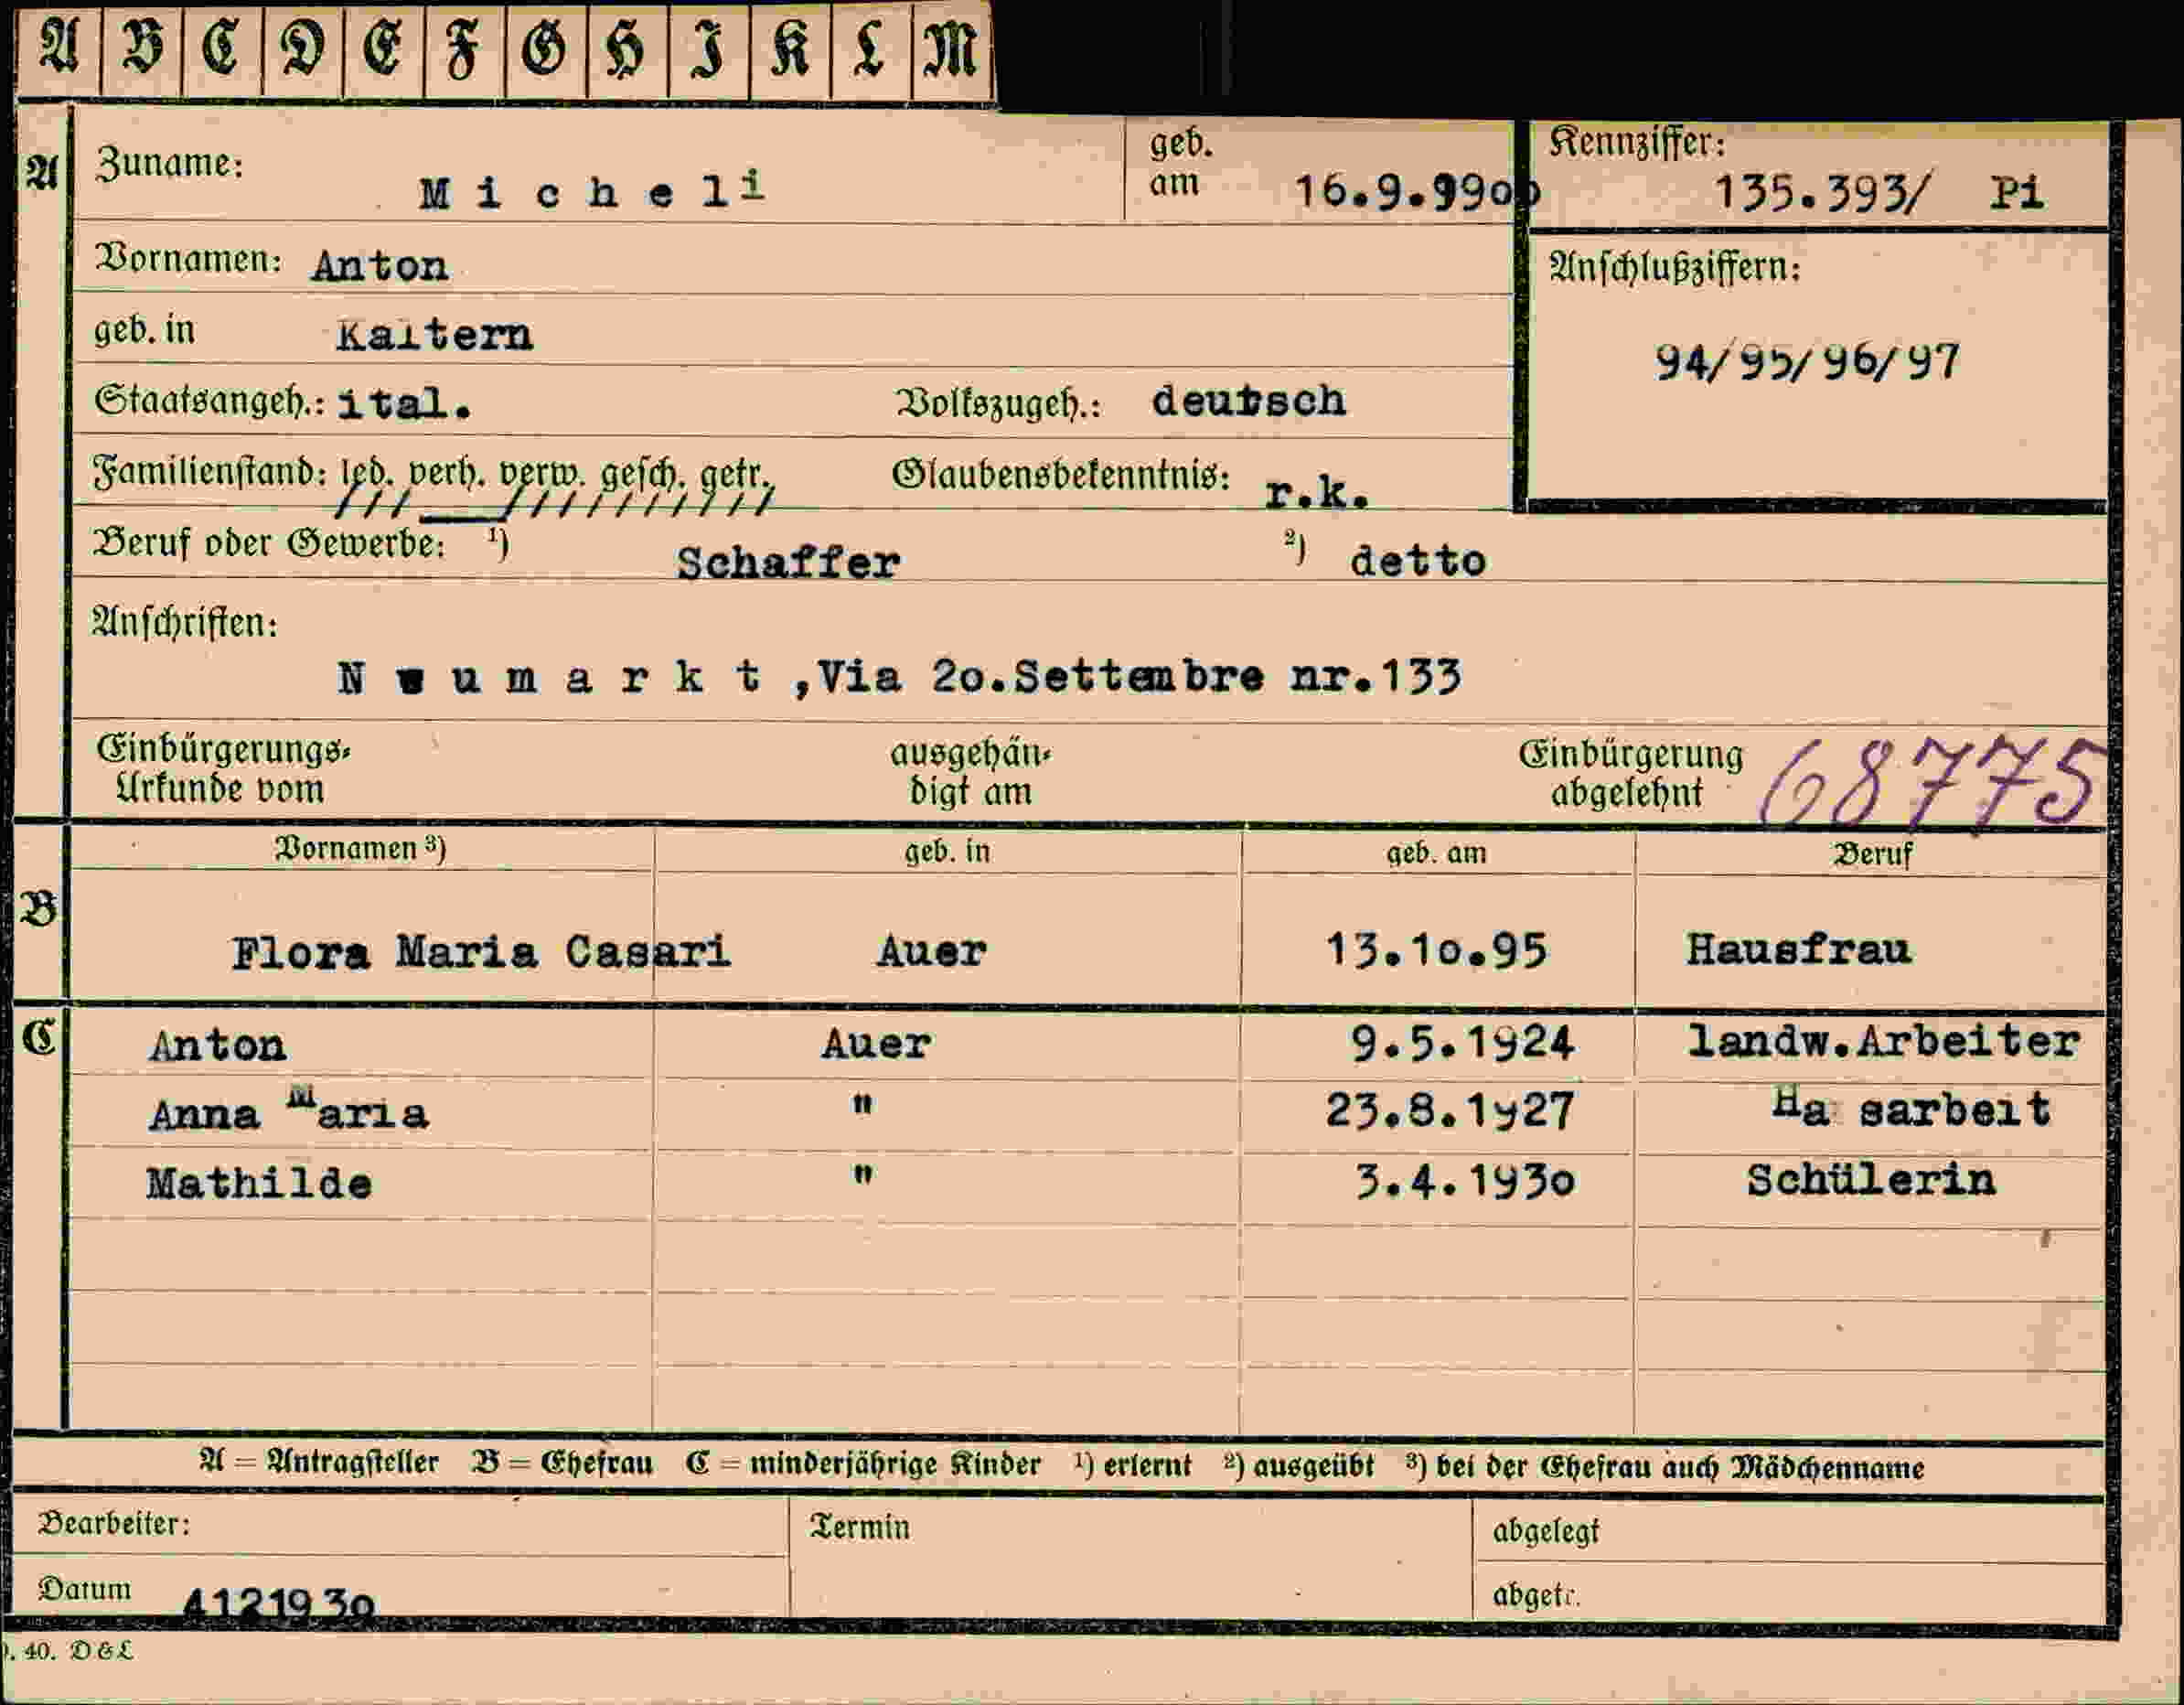 A B C D E F G H I K L M
A
Zuname: Micheli geb. am 16.9.99oo Kennziffer: 135.393/ Pi
Vornamen: Anton
Anschlußziffern:
geb. in Kaltern
94/95/96/97
Staatsangeh.: ital. Volkszugeh.: deutsch
Familienstand: led. verh. verw. gesch. getr. Glaubensbekenntnis: r.k.
Beruf oder Gewerbe: ¹) Schaffer ²) detto
Anschriften:
Neumarkt ,Via 2o.Settembre nr.133
Einbürgerungs- ausgehän- Einbürgerung 68775
Urkunde vom digt am abgelehnt
Vornamen ³) geb. in geb. am Beruf
B
Flora Maria Casari Auer 13.1o.95 Hausfrau
C
Anton Auer 9.5.1924 landw.Arbeiter
Anna Maria " 23.8.1927 Ha sarbeit
Mathilde " 3.4.193o Schülerin
A = Antragsteller B = Ehefrau C = minderjährige Kinder ¹) erlernt ²) ausgeübt ³) bei der Ehefrau auch Mädchenname
Bearbeiter: Termin abgelegt
Datum 4121939 abgetr.
40. D & L